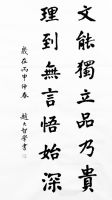 文能獨立品乃貴
理到無言悟始深
歲在丙申仲春